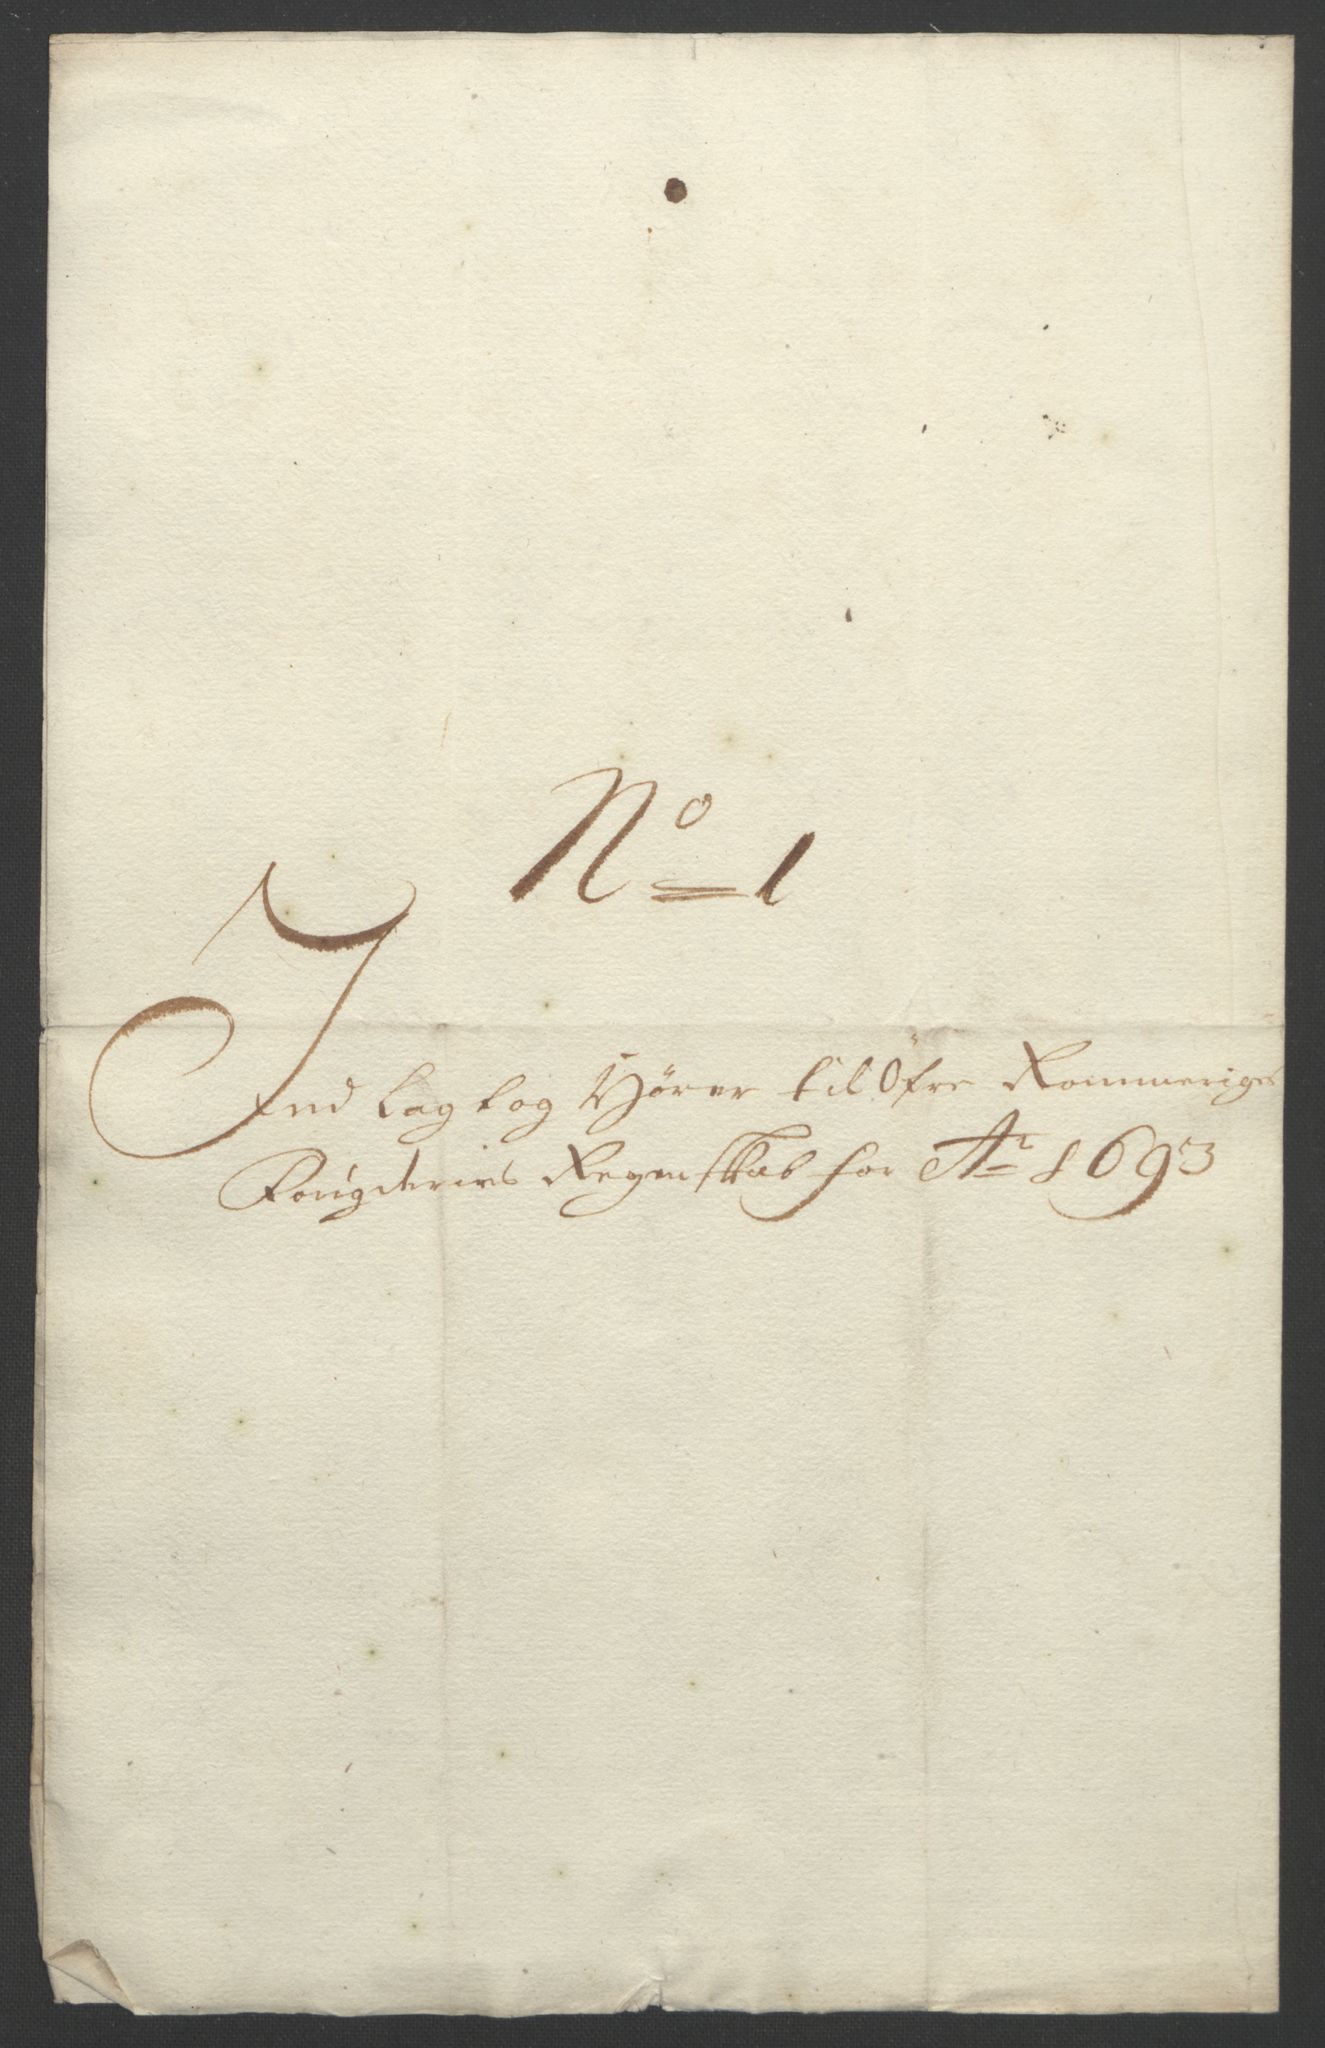 No 1
Ind Lag tog Hörer til Öfre Rommeriges
Fougderies Regenskab for Ao 1693